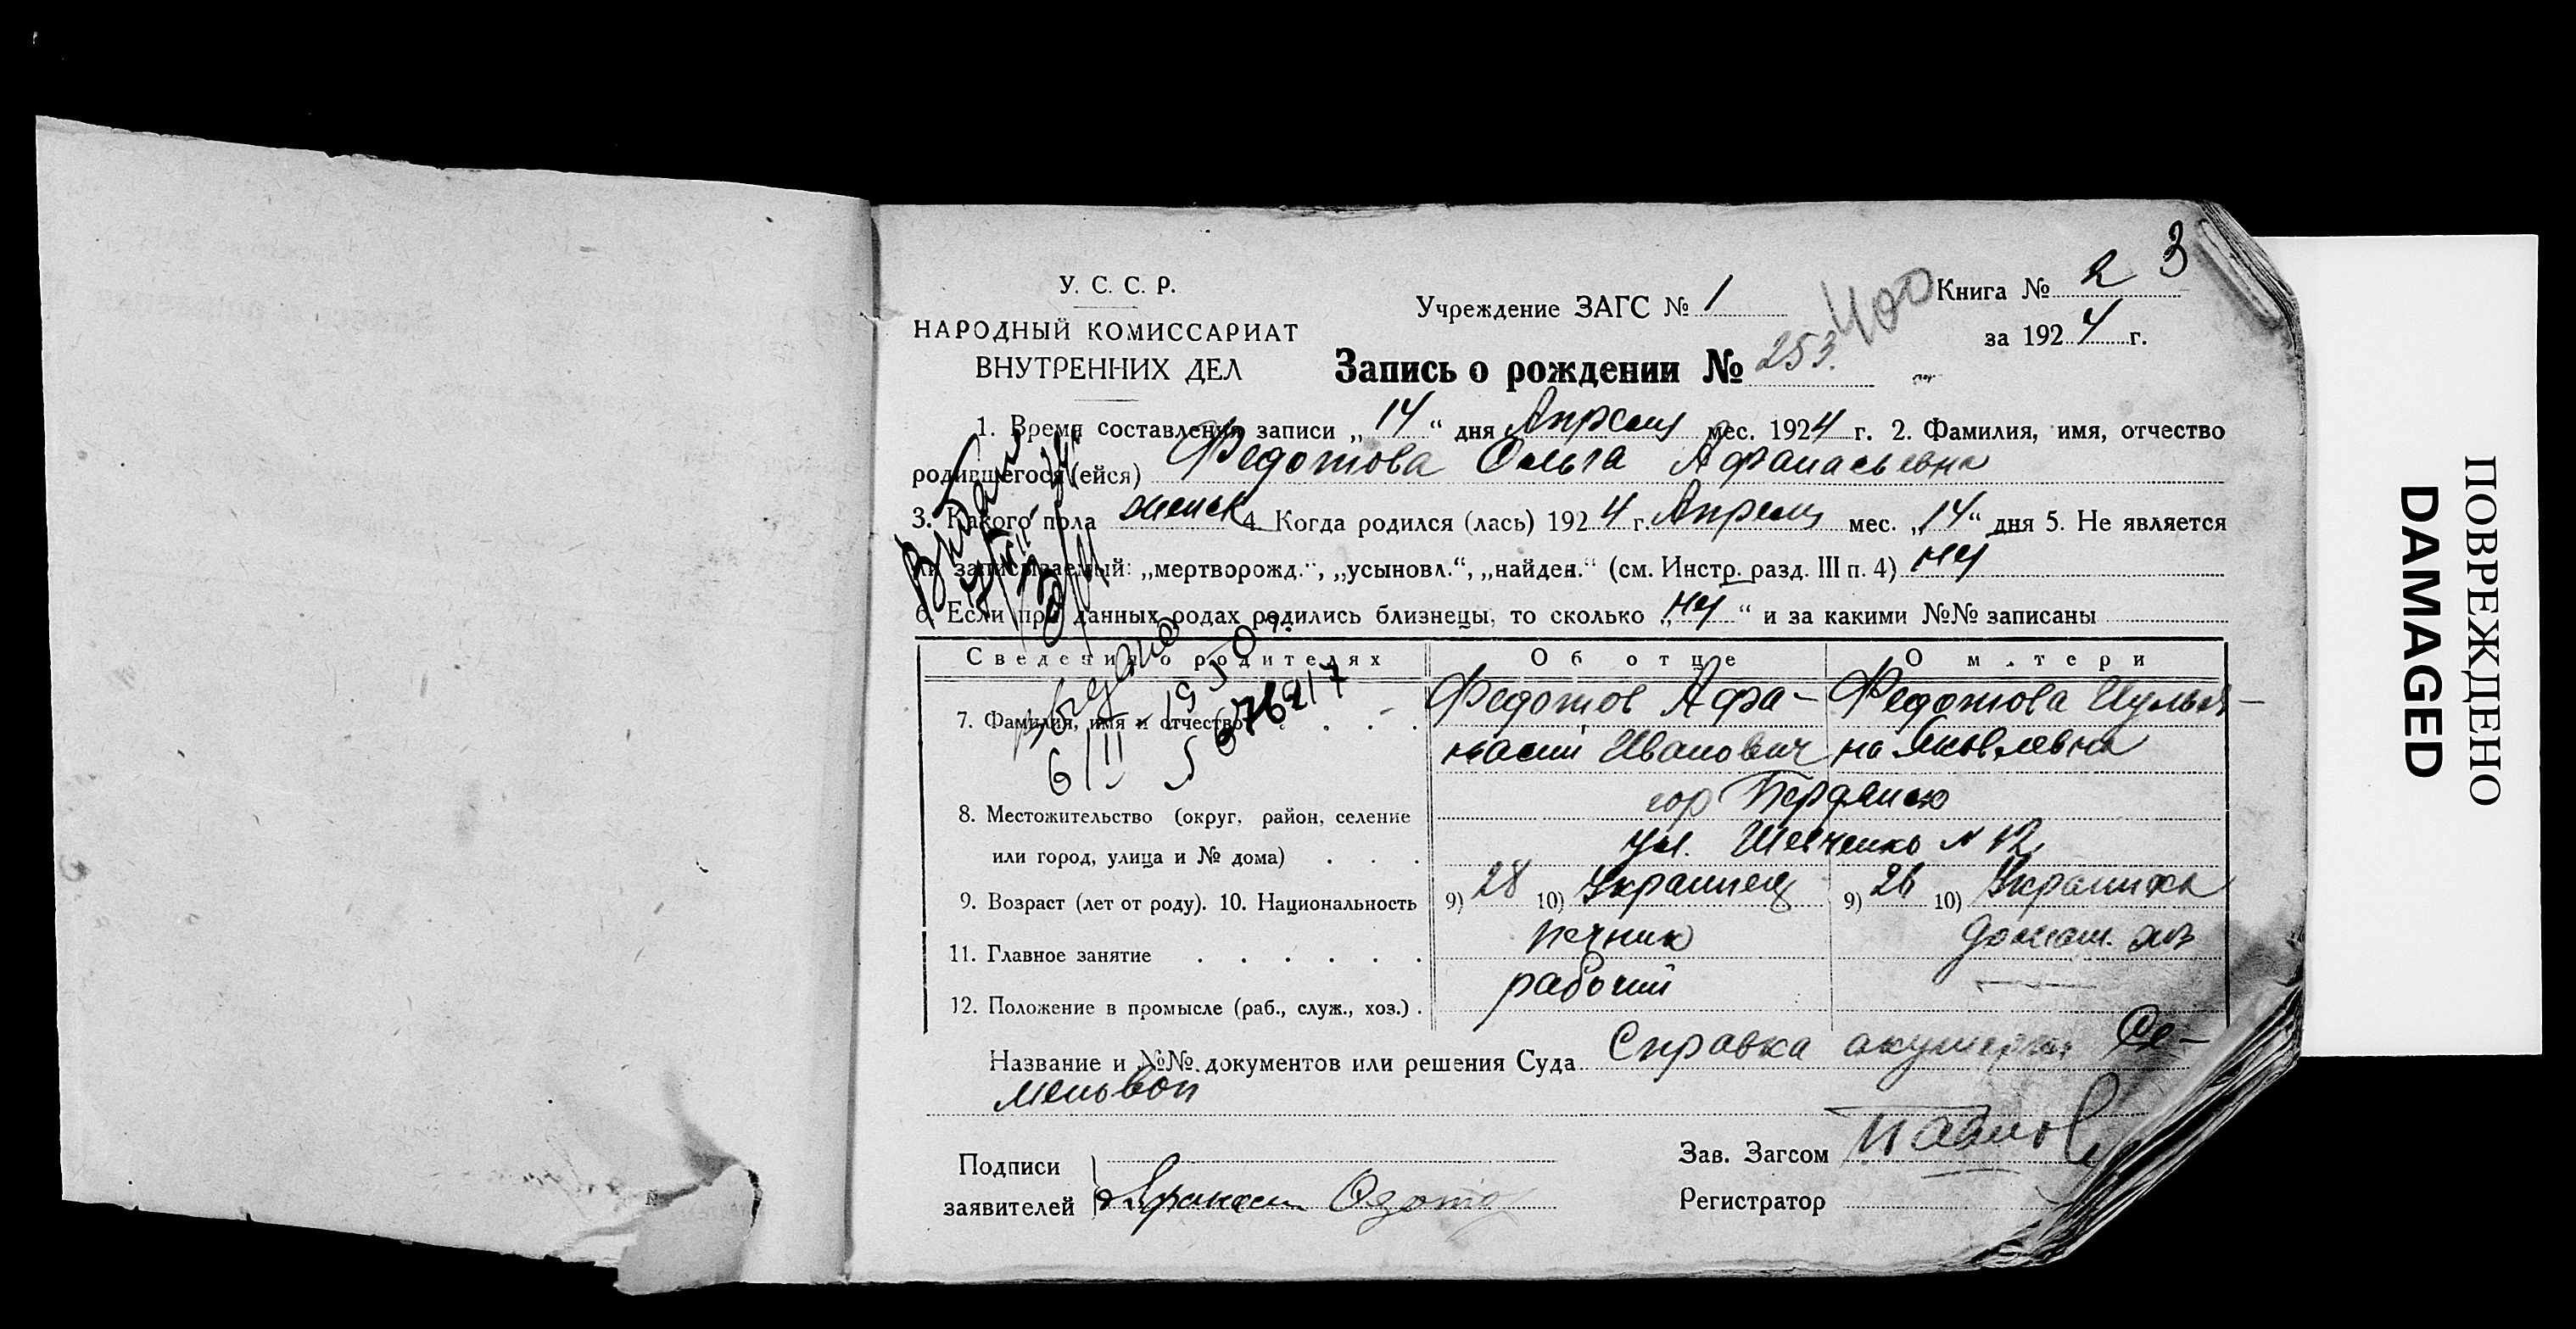 3
У. С. С. Р.
НАРОДНЫЙ КОМИССАРИАТ
ВНУТРЕННИХ ДЕЛ
Учреждение ЗАГС № 1
400
Книга № 2
за 1924 г.
Запись о рождении № 253.
1. Время составления записи „14“ дня Апреля мес. 1924 г. 2. Фамилия, имя, отчество
родившегося (ейся) Федотова Ольга Афанасьевна
3. Какого пола женск 4. Когда родился (лась) 1924 г. Апреля мес. „14“ дня 5. Не является
ли записываемый: „мертворожд.“, „усыновл.“, „найден.“ (см. Инстр. разд. III п. 4) нет
6. Если при данных родах родились близнецы, то сколько „нет“ и за какими №№ записаны
Сведения о родителях Об отце О матери
7. Фамилия, имя и отчество Федотов Афа- Федотова Иулья-
насий Иванович на Яковлевна
8. Местожительство (округ, район, селение гор Бердянск
или город, улица и № дома) ул. Шевченко N 12
9. Возраст (лет от роду). 10. Национальность 9) 28 10) Украинец 9) 26 10) Украинка
11. Главное занятие Печник домаш. хоз
12. Положение в промысле (раб., служ., хоз.) рабочий
Название и №№ документов или решения Суда Справка акушерки Се-
меновой
Подписи
заявителей Афанаси
Зав. Загсом Павлов
Регистратор
Выдано
6/II 1950 г.
ПОВРЕЖДЕНО
DAMAGED